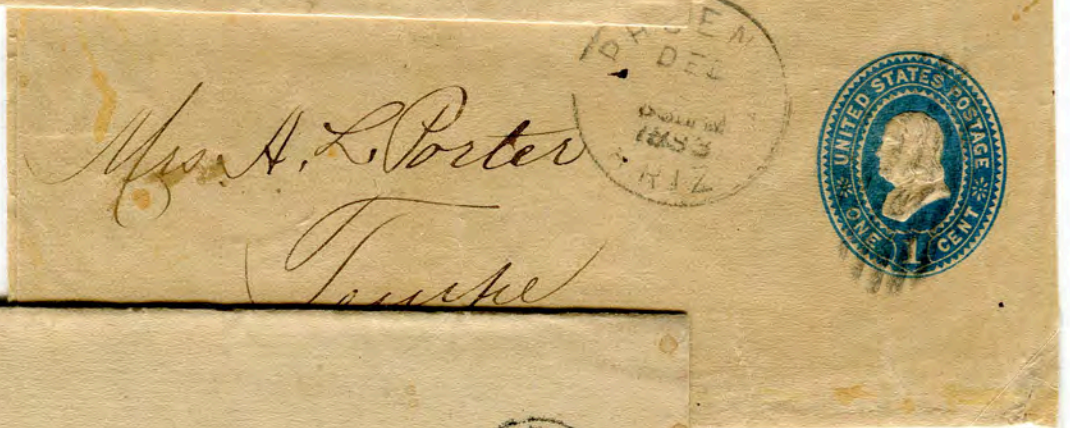 Mrs. A. L. Porter
PHOEN
DEC
1883
ARIZ
UNITED STATES POSTAGE
ONE 1 CENT